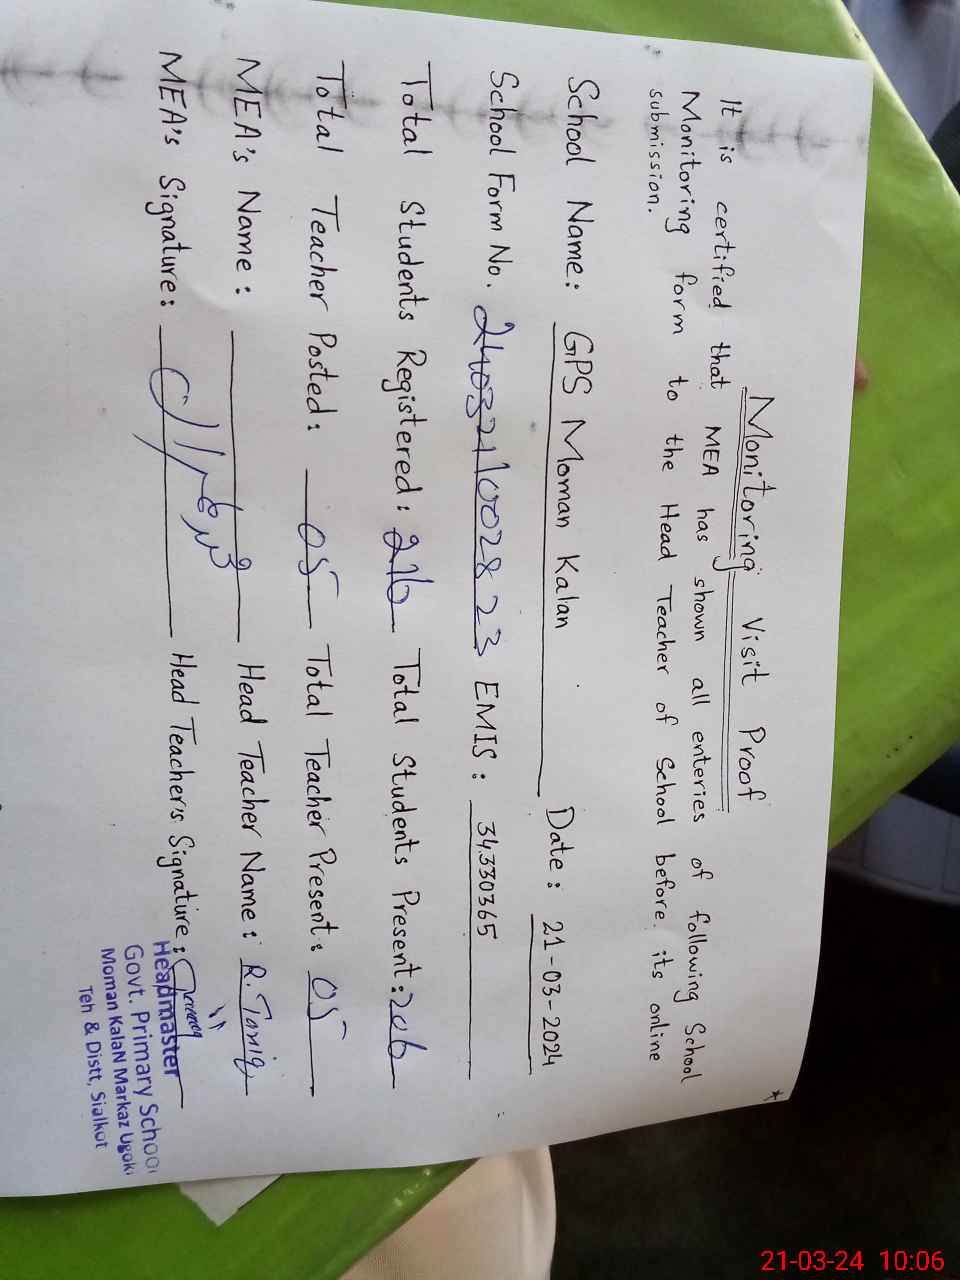 Monitoring Visit Proof
It is certified that MEA has shown all enteries of following School
Monitoring form to the Head Teacher of School before its online
submission.
School Name: GPS Moman Kalan Date: 21-03-2024
School Form No. EMIS: 34330365
Total Students Registered: 216 Total Students Present: 206
Total Teacher Posted: 05 Total Teacher Present: 05
MEA's Name: Head Teacher Name: R. Tariq
MEA's Signature: Head Teacher's Signature:
Headmaster
Govt. Primary School
Moman KalaN Markaz Ugoki
Teh & Distt, Sialkot
21-03-24 10:06